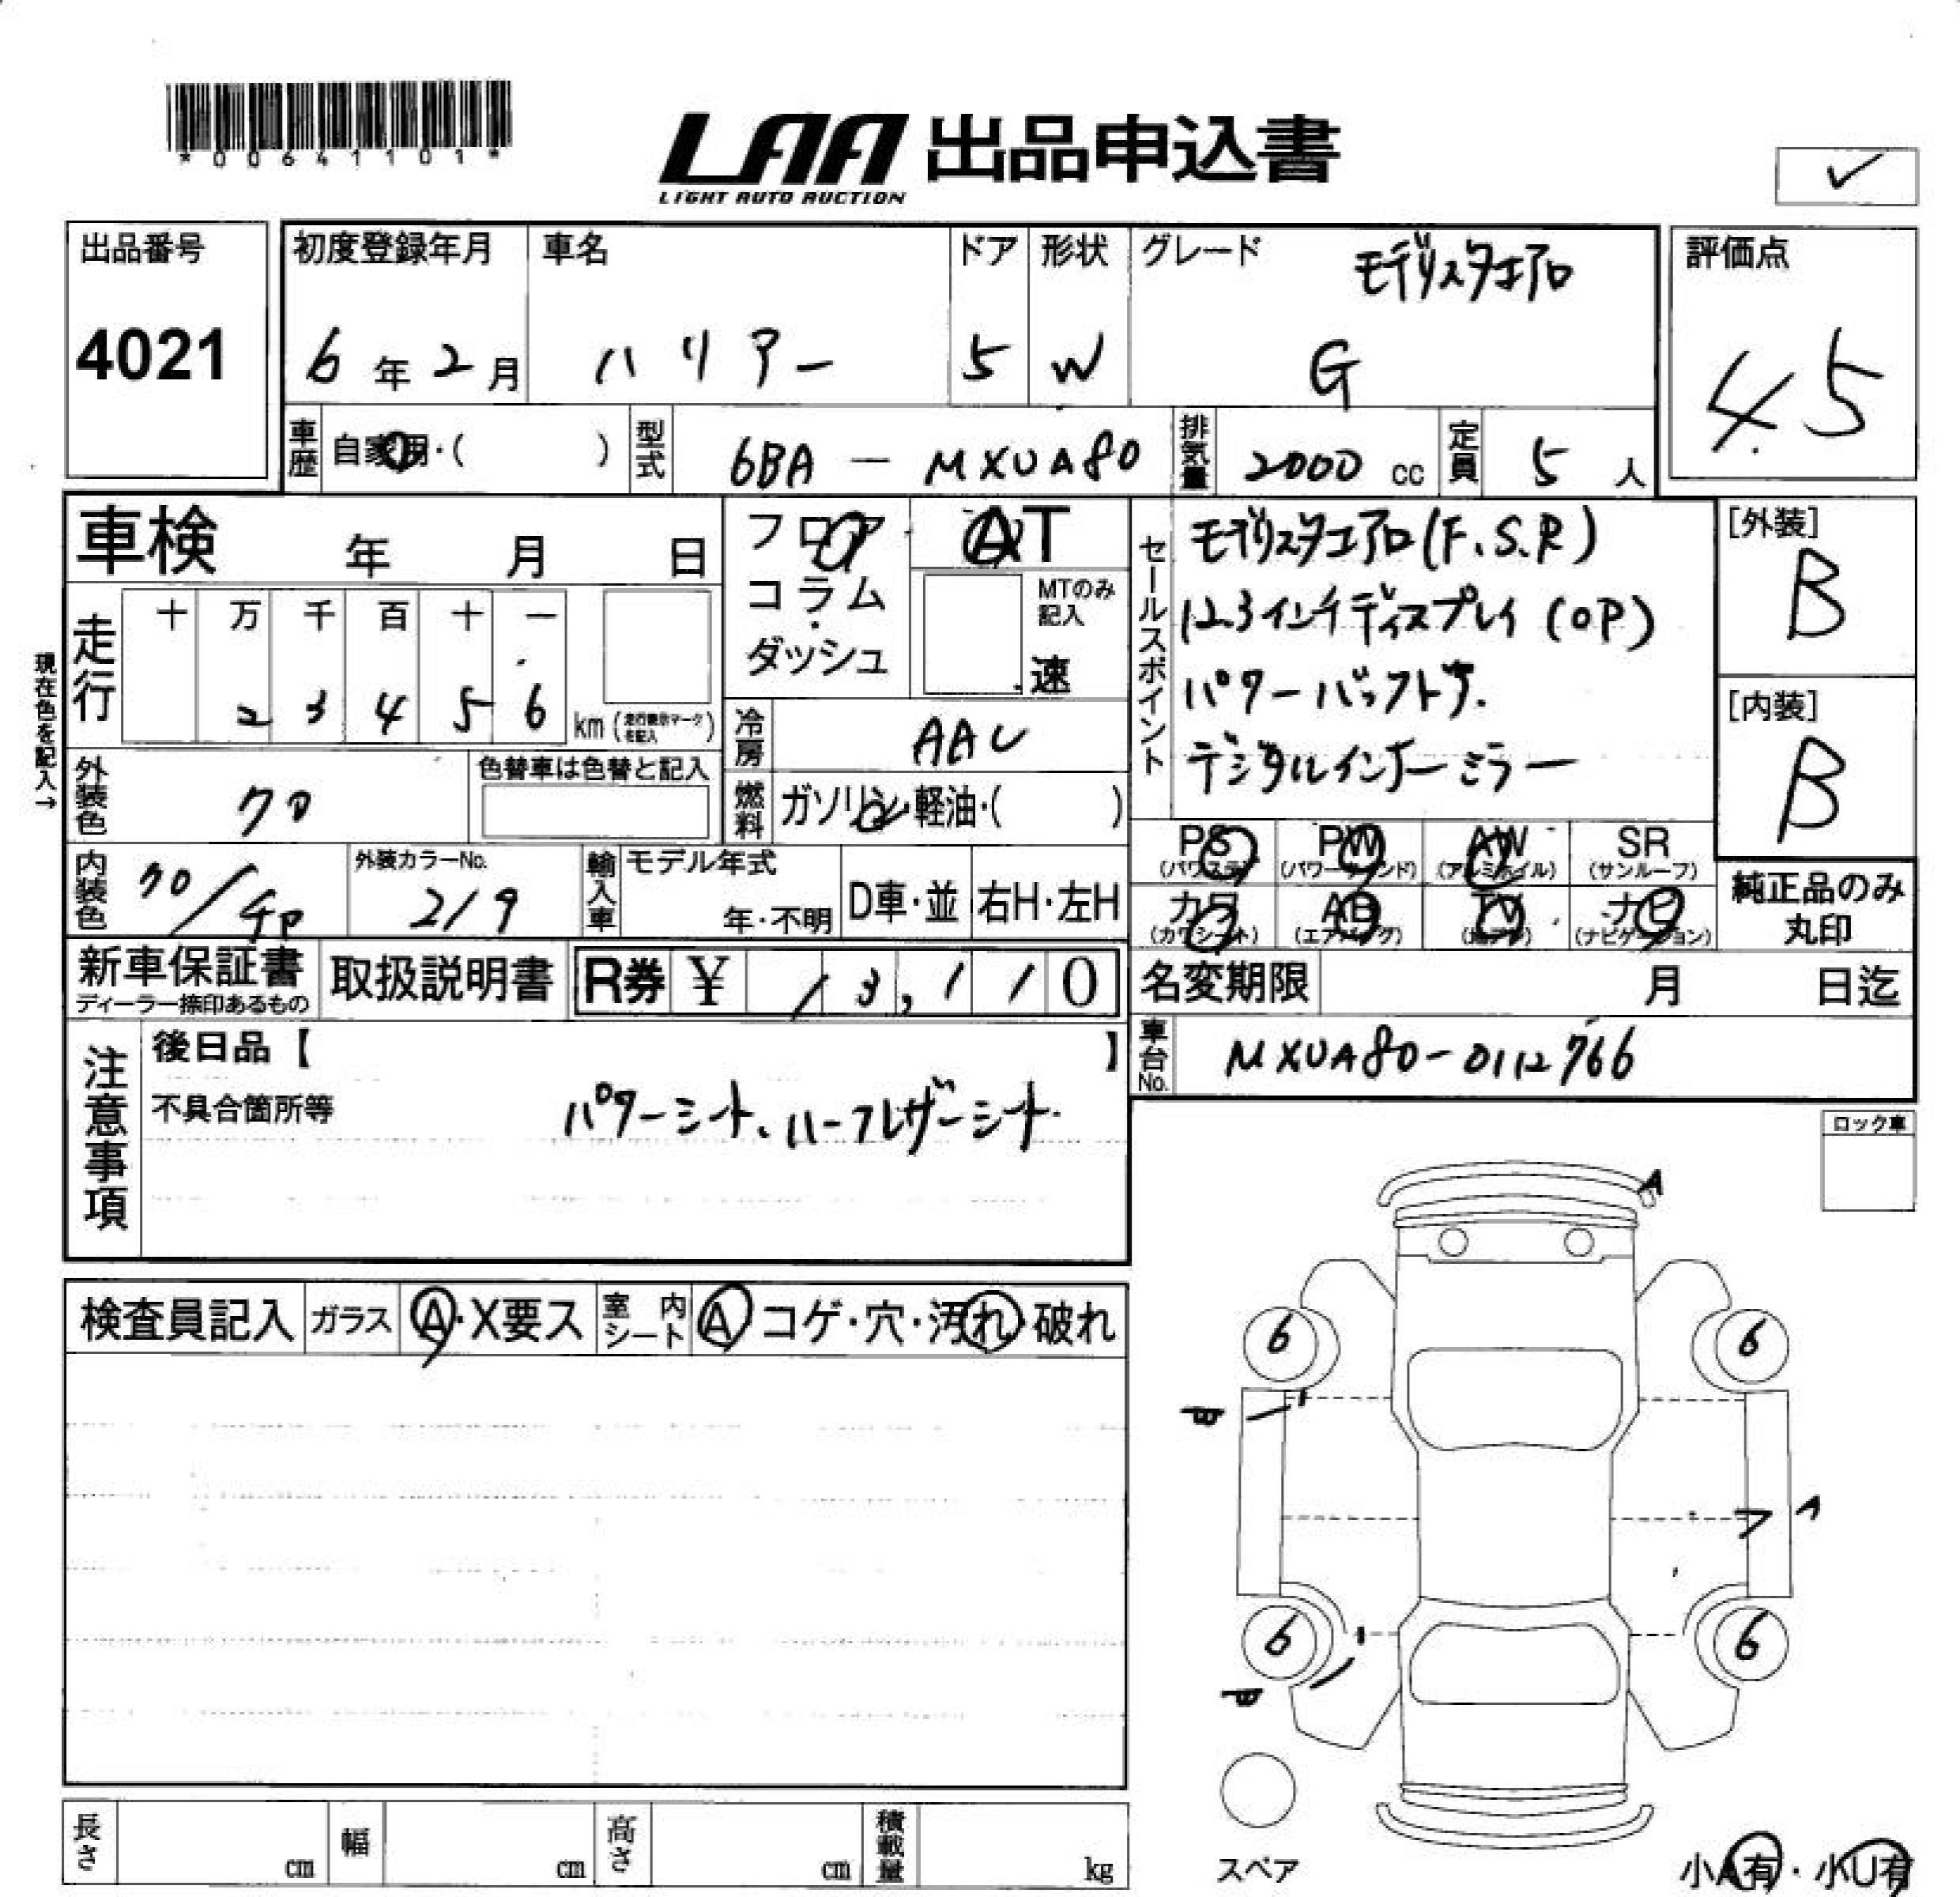 *00641101*
LAA 出品申込書
LIGHT AUTO AUCTION
出品番号
4021
初度登録年月
6年2月
車名
ハリアー
ドア
5
形状
W
グレード
モデリスタエアロ
G
評価点
4.5
車歴
自家用・( )
型式
6BA - MXUA80
排気量
2000 cc
定員
5 人
車検 年 月 日
現在色を記入→
走行
十 万 千 百 十 一
2 3 4 5 6
km (走行表示マークを記入)
フロア
コラム
ダッシュ
AT
MTのみ記入
速
冷房
AAC
燃料
ガソリン・軽油・( )
セールスポイント
モデリスタエアロ(F.S.R)
12.3インチディスプレイ(OP)
パワーバックドア.
デジタルインナーミラー
[外装]
B
[内装]
B
外装色
クロ
色替車は色替と記入
内装色
クロ/チャ
外装カラーNo.
219
輸入車
モデル年式
年・不明
D車・並
右H・左H
PS
(パワステ)
PW
(パワーウィンド)
AW
(アルミホイル)
SR
(サンルーフ)
カワ
(カワシート)
AB
(エアバッグ)
TV
(地デジ)
ナビ
(ナビゲーション)
純正品のみ
丸印
新車保証書
ディーラー捺印あるもの
取扱説明書
R券 ¥ 13,110
名変期限 月 日迄
車台No.
MXUA80-0112766
注意事項
後日品【 】
不具合箇所等
パワーシート、ハーフレザーシート.
ロック車
検査員記入
ガラス
A・X要ス
室内シート
A コゲ・穴・汚れ・破れ
A
6
6
A
6
6
スペア
長さ cm
幅 cm
高さ cm
積載量 kg
小A有・小U有